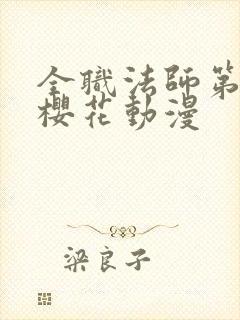 全職法師第
櫻花動漫
梁良子